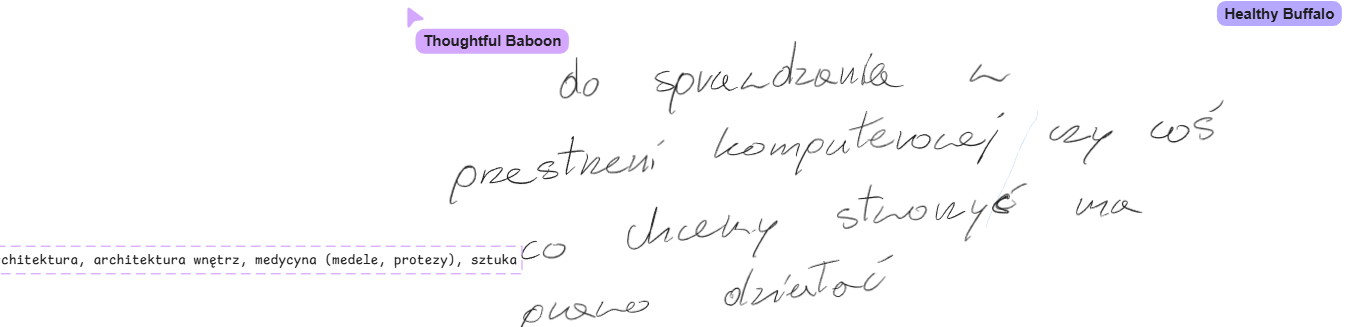 Healthy Buffalo
Thoughtful Baboon
do sprawdzania w
przestrzeni komputerowej czy coś
co chcemy stworzyć ma
prawo działać
chitektura, architektura wnętrz, medycyna (medele, protezy), sztuka